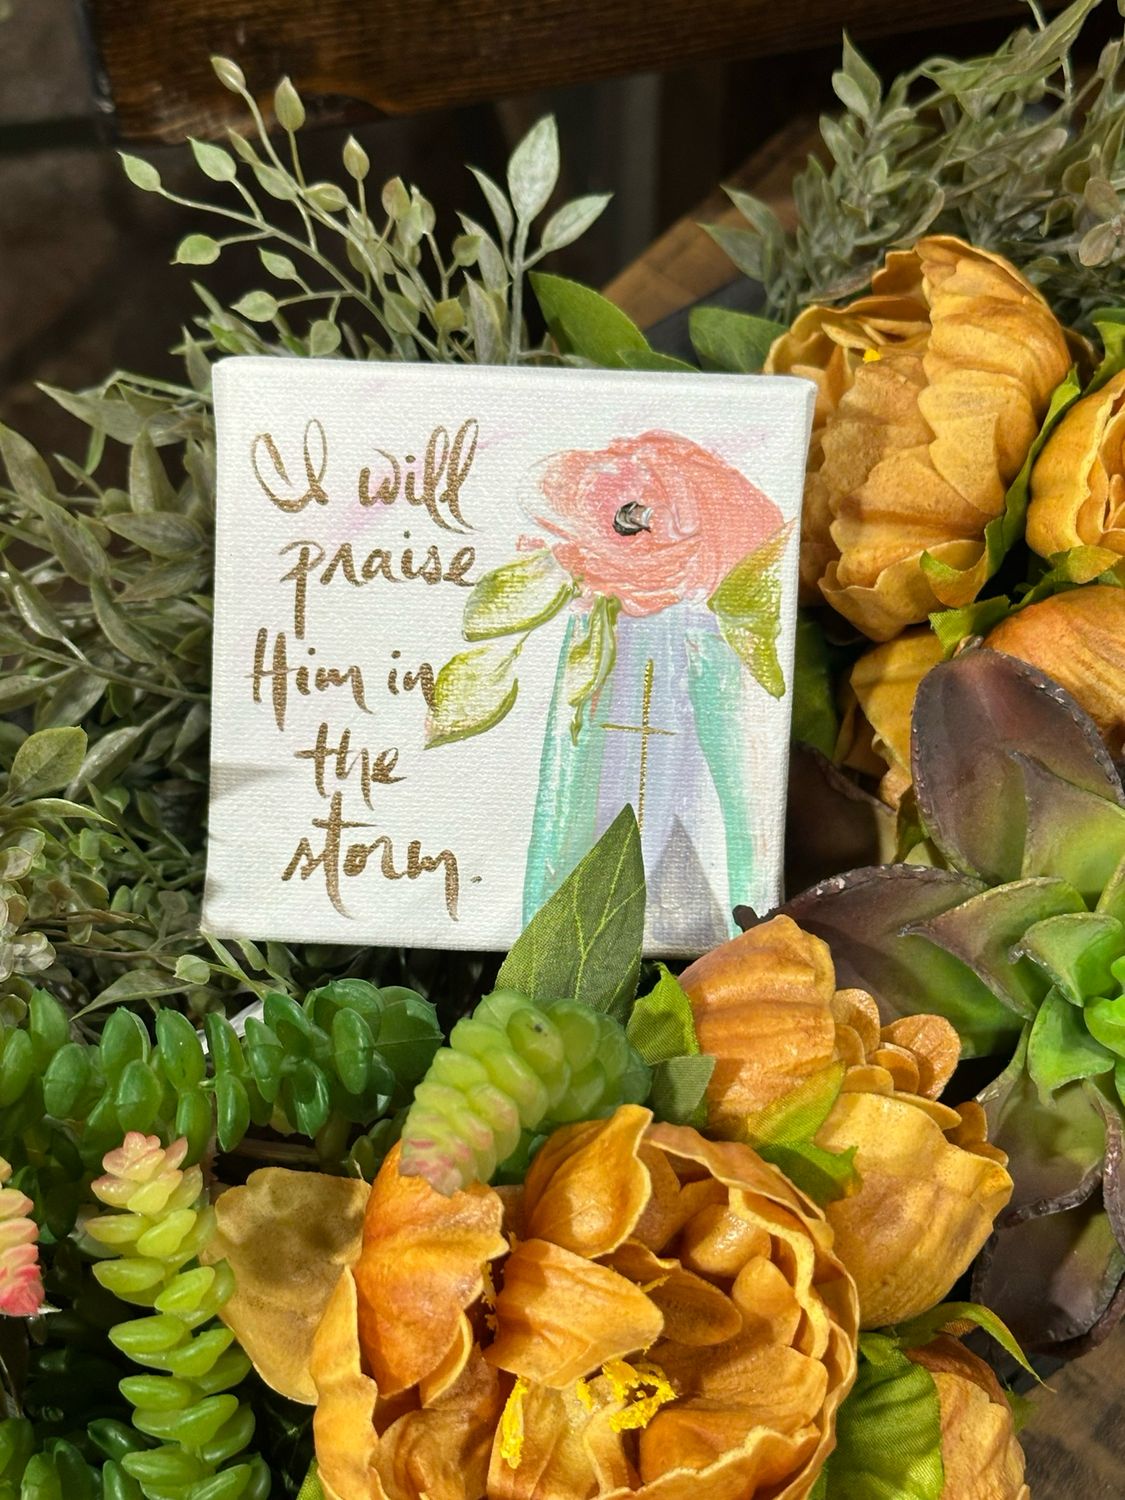 I will
praise
Him in
the
storm.